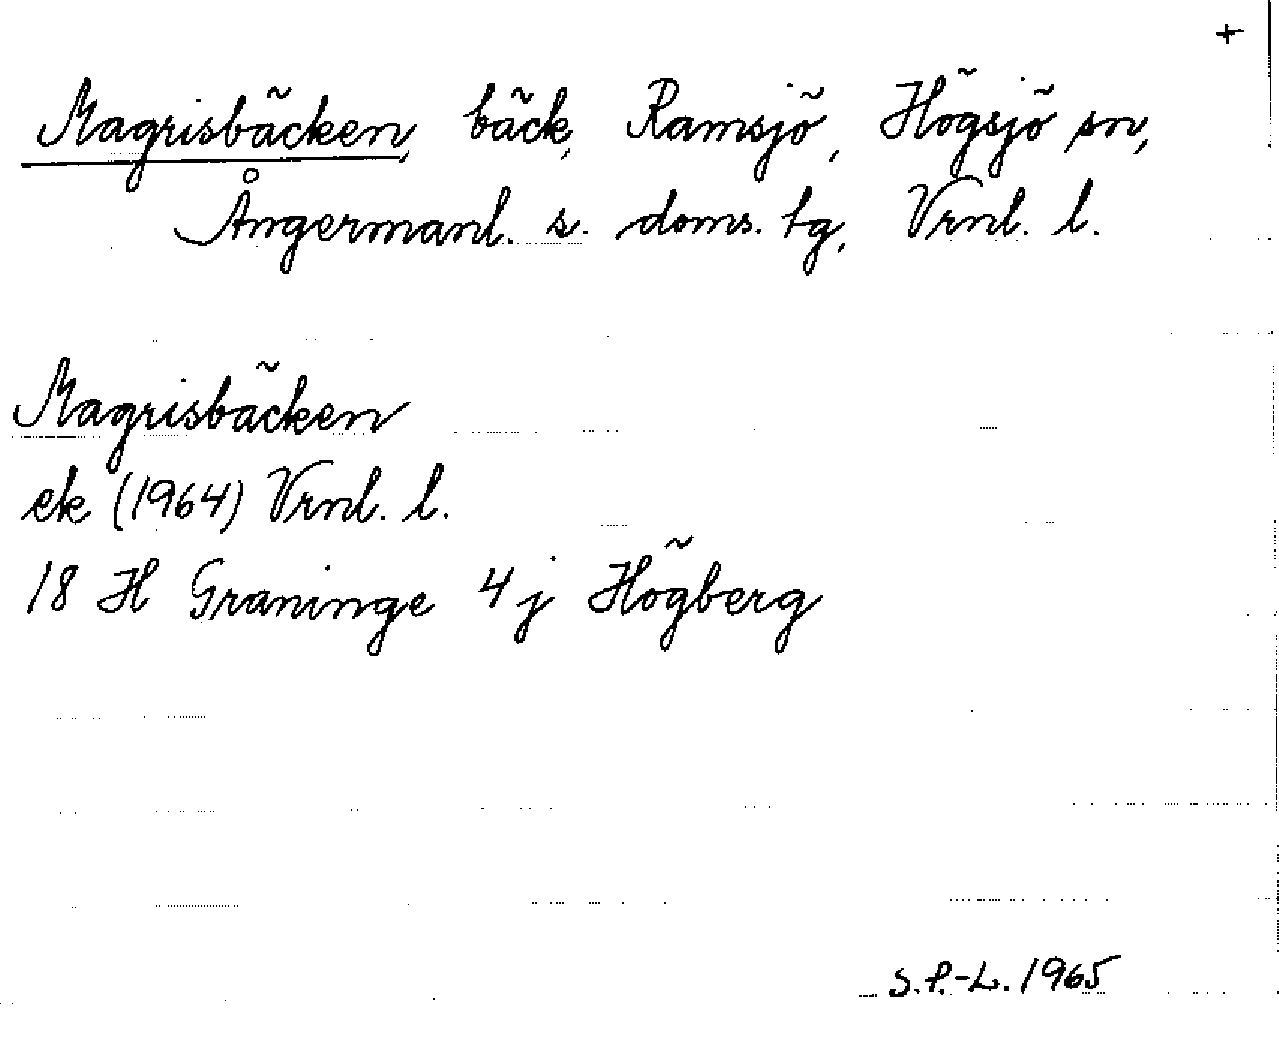 +
Magrisbäcken, bäck, Ramsjö, Högsjö sn,
Ångermanl. s. doms. tg, Vrnl. l.
Magrisbäcken
ek (1964) Vrnl. l.
18 H Graninge 4 j Högberg
S.P.-L. 1965